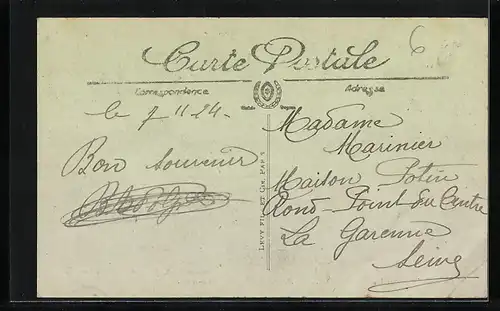 6
Carte Postale
Correspondence
Adresse
le 7 11 24.
Bon souvenir
LEVY FILS ET CIE. PARIS
Madame
Marinier
Maison Potin
Rond-Point du Centre
La Garenne
Seine